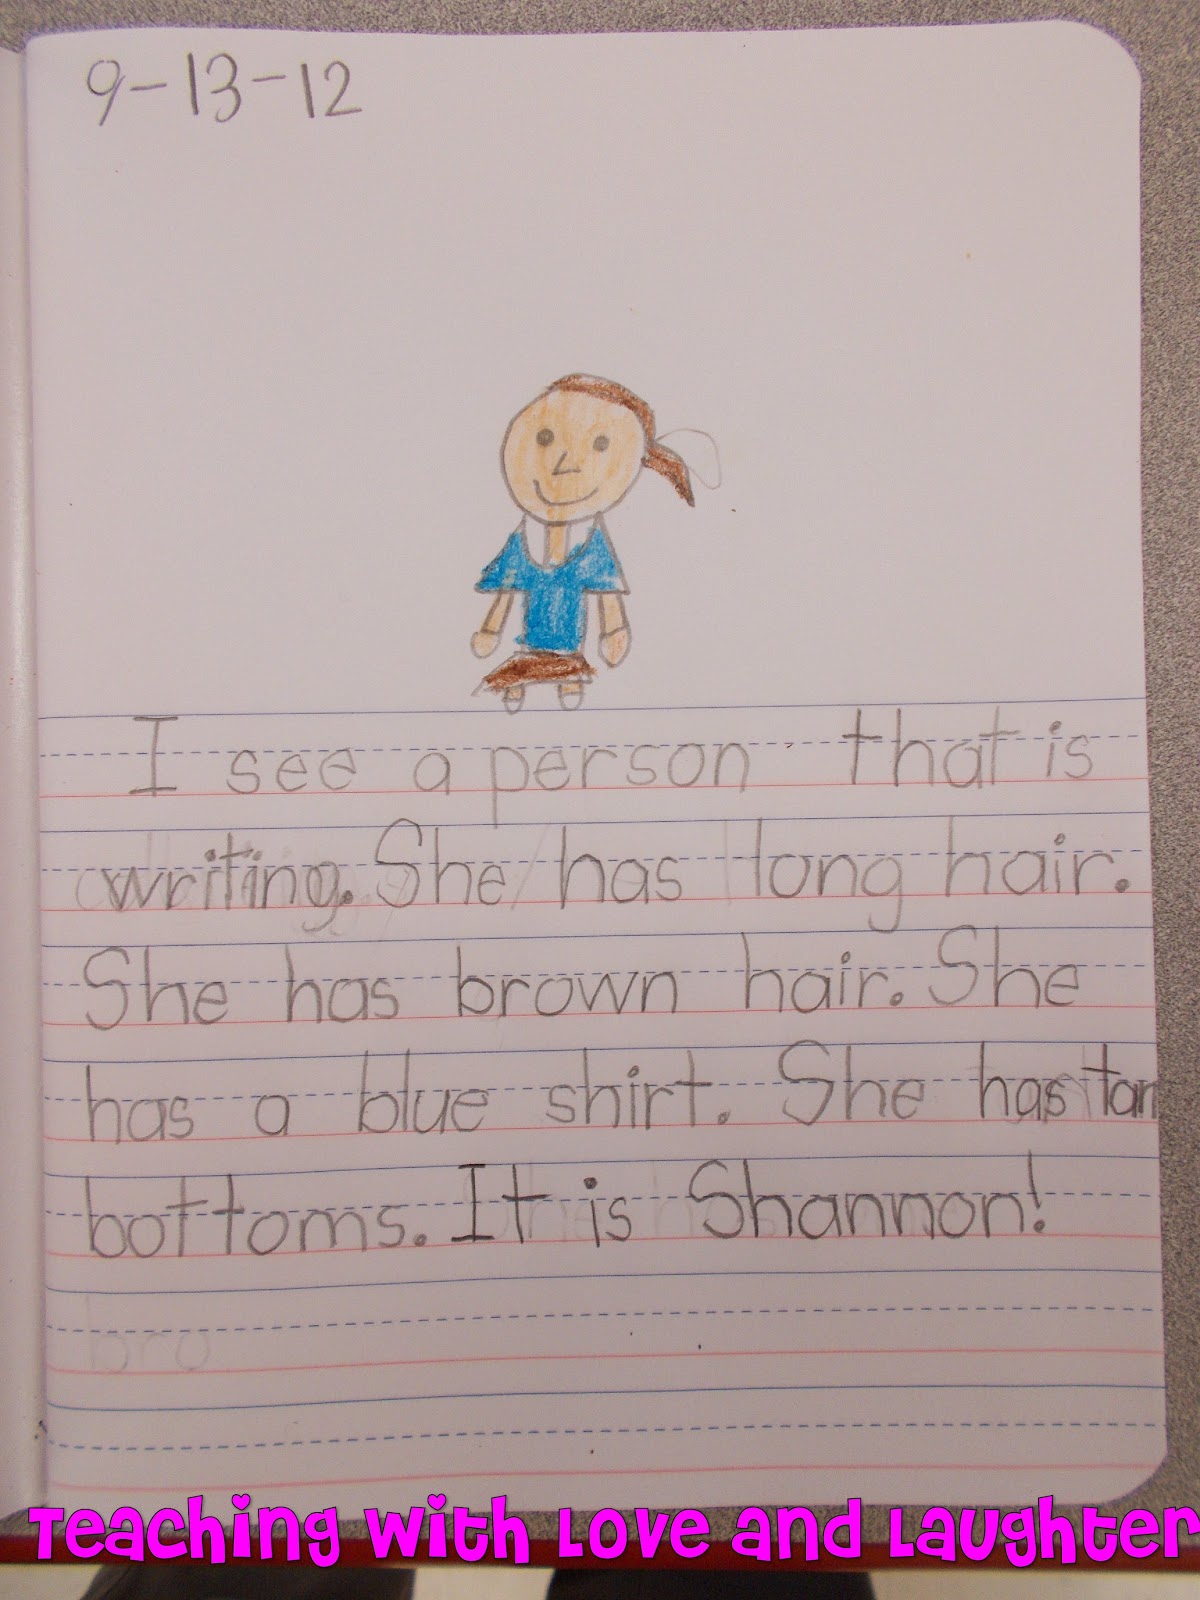 9-13-12
I see a person that is
writing. She has long hair.
She has brown hair. She
has a blue shirt. She has tan
bottoms. It is Shannon!
bro
Teaching with Love and Laughter